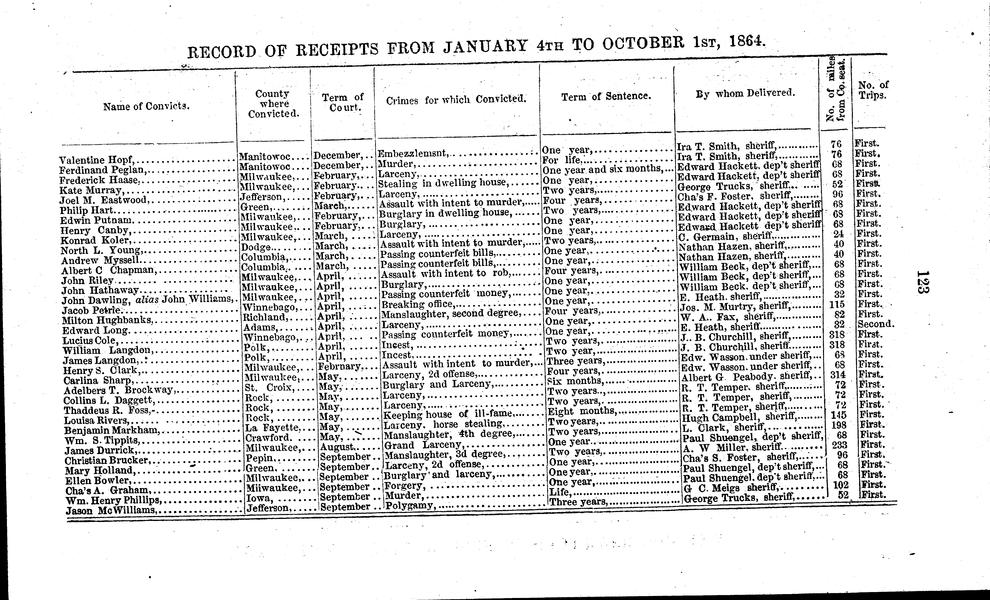 RECORD OF RECEIPTS FROM JANUARY 4TH TO OCTOBER 1ST, 1864.
Name of Convicts. County where Convicted. Term of Court. Crimes for which Convicted. Term of Sentence. By whom Delivered. No. of miles from Co. seat. No. of Trips.
Valentine Hopf, Manitowoc December, Embezzlemsnt, One year, Ira T. Smith, sheriff, 76 First.
Ferdinand Peglan, Manitowoc December, Murder, For life, Ira T. Smith, sheriff, 76 First.
Frederick Haase, Milwaukee, February, Larceny, One year and six months, Edward Hackett, dep't sheriff 68 First.
Kate Murray, Milwaukee, February, Stealing in dwelling house, One year, Edward Hackett, dep't sheriff 68 First.
Joel M. Eastwood, Jefferson, February, Larceny, Two years, George Trucks, sheriff, 52 First.
Philip Hart, Green, March, Assault with intent to murder, Four years, Cha's F. Foster, sheriff, 96 First.
Edwin Putnam, Milwaukee, February, Burglary in dwelling house, Two years, Edward Hackett, dep't sheriff 68 First.
Henry Canby, Milwaukee, February, Burglary, One year, Edward Hackett, dep't sheriff 68 First.
Konrad Koler, Milwaukee, March, Larceny, One year, Edward Hackett, dep't sheriff 68 First.
North L. Young, Dodge, March, Assault with intent to murder, Two years, C. Germain, sheriff, 24 First.
Andrew Myssell, Columbia, March, Passing counterfeit bills, One year, Nathan Hazen, sheriff, 40 First.
Albert C Chapman, Columbia, March, Passing counterfeit bills, One year, Nathan Hazen, sheriff, 40 First.
John Riley Milwaukee, April, Assault with intent to rob, Four years, William Beck, dep't sheriff, 68 First.
John Hathaway Milwaukee, April, Burglary, One year, William Beck, dep't sheriff, 68 First.
John Dawling, alias John Williams, Milwaukee, April, Passing counterfeit money, One year, William Beck. dep't sheriff, 68 First.
Jacob Petrie, Winnebago, April, Breaking office, One year, E. Heath. sheriff, 32 First.
Milton Hughbanks, Richland, April, Manslaughter, second degree, Four years, Jos. M. Murtry, sheriff, 115 First.
Edward Long, Adams, April, Larceny, One year, W. A. Fax, sheriff, 82 First.
Lucius Cole, Winnebago, April, Passing counterfeit money, One year, E. Heath, sheriff, 32 Second.
William Langdon, Polk, April, Incest, Two years, J. B. Churchill, sheriff, 318 First.
James Langdon, Polk, April, Incest, Two year, J. B. Churchill, sheriff, 318 First.
Henry S. Clark, Milwaukee, February, Assault with intent to murder, Three years, Edw. Wasson. under sheriff, 68 First.
Carlina Sharp, Milwaukee, May, Larceny, 2d offense, Four years, Edw. Wasson. under sheriff, 68 First.
Adelbers T. Brockway, St. Croix, May, Burglary and Larceny, Six months, Albert G Peabody. sheriff, 314 First.
Collins L. Daggett, Rock, May, Larceny, Two years, R. T. Temper. sheriff, 72 First.
Thaddeus R. Foss, Rock, May, Larceny, Two years, R. T. Temper, sheriff, 72 First.
Louisa Rivers, Rock, May, Keeping house of ill-fame Eight months, R. T. Temper, sheriff, 72 First.
Benjamin Markham, La Fayette, May, Larceny. horse stealing, Two years, Hugh Campbell, sheriff, 145 First.
Wm. S. Tippits, Crawford. May, Manslaughter, 4th degree, Two years, L. Clark, sheriff, 198 First.
James Durrick, Milwaukee, August. Grand Larceny, One year Paul Shuengel, dep't sheriff, 68 First.
Christian Brucker, Pepin, September Manslaughter, 3d degree, Two years, A. W Miller, sheriff, 233 First.
Mary Holland, Green, September Larceny, 2d offense, One year, Cha's S. Foster, sheriff, 96 First.
Ellen Bowler, Milwaukee, September Burglary and larceny, One year, Paul Shuengel, dep't sheriff, 68 First.
Cha's A. Graham, Milwaukee, September Forgery, One year, Paul Shuengel. dep't sheriff, 68 First.
Wm. Henry Phillips, Iowa, September Murder, Life, G C. Meigs sheriff, 102 First.
Jason McWilliams, Jefferson, September Polygamy, Three years, George Trucks, sheriff, 52 First.
123